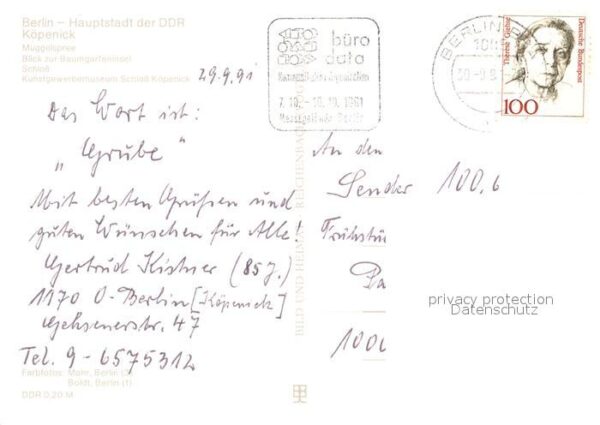 Berlin – Hauptstadt der DDR
Köpenick
Müggelspree
Blick zur Baumgarteninsel
Schloß
Kunstgewerbemuseum Schloß Köpenick
29.9.91
Das Wort ist:
"Grube"
Mit besten Grüßen und
guten Wünschen für Alle!
Gertrud Kistner (85 J.)
1170 O-Berlin [Köpenick]
47
Tel. 9-6575312
Farbfotos: Mohr, Berlin
Boldt, Berlin (1)
DDR 0,20 M
BILD UND HEIMAT REICHENBACH
büro
data
7.10. - 10.10.1991
Messegelände Berlin
BERLIN
Therese Giehse
Deutsche Bundespost
100
An den
Sender 100,6
Frühstü
Pa
100
privacy protection
Datenschutz